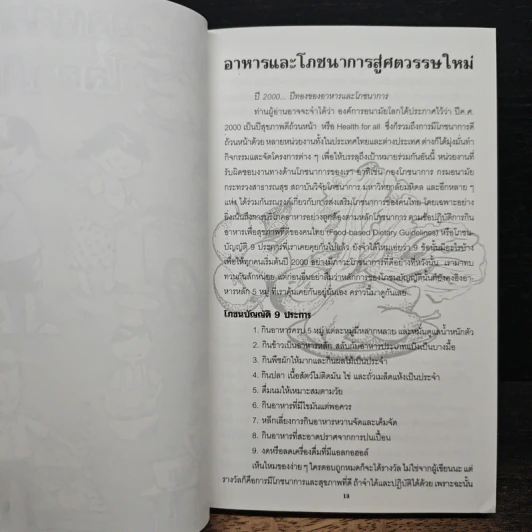 อาหารและโภชนาการสู่ศตวรรษใหม่
ปี 2000... ปีทองของอาหารและโภชนาการ
ท่านผู้อ่านอาจจะจำได้ว่า องค์การอนามัยโลกได้ประกาศไว้ว่า ปีค.ศ.
2000 เป็นปีสุขภาพดีถ้วนหน้า หรือ Health for all ซึ่งก็รวมถึงการมีโภชนาการดี
ถ้วนหน้าด้วย หลายหน่วยงานทั้งในประเทศไทยและต่างประเทศ ต่างก็ได้มุ่งมั่นทำ
กิจกรรมและจัดโครงการต่าง ๆ เพื่อให้บรรลุถึงเป้าหมายร่วมกันอันนี้ หน่วยงานที่
รับผิดชอบงานทางด้านโภชนาการของเรา อาทิเช่น กองโภชนาการ กรมอนามัย
กระทรวงสาธารณสุข สถาบันวิจัยโภชนาการ มหาวิทยาลัยมหิดล และอีกหลาย ๆ
แห่ง ได้ร่วมกันรณรงค์เกี่ยวกับการส่งเสริมโภชนาการของคนไทย โดยเฉพาะอย่าง
ยิ่งเน้นถึงการบริโภคอาหารอย่างถูกต้องตามหลักโภชนาการ ตามข้อปฏิบัติการกิน
อาหารเพื่อสุขภาพที่ดีของคนไทย (Food-based Dietary Guidelines) หรือโภชน-
บัญญัติ 9 ประการที่เราเคยคุยกันไปแล้ว ยังจำได้ไหมเอ่ยว่า 9 ข้อนั้นมีอะไรบ้าง
เพื่อให้ทุกคนเริ่มต้นปี 2000 อย่างมีภาวะโภชนาการที่ดีอย่างที่หวังนั้น เรามาทบ
ทวนกันสักหน่อย แต่ก่อนอื่นอย่าลืมว่าหลักการของโภชนบัญญัตินั้นก็ยังคงอิงอา-
หารหลัก 5 หมู่ ที่เราคุ้นเคยกันอยู่นั่นเอง คราวนี้มาดูกันเลย
โภชนบัญญัติ 9 ประการ
1. กินอาหารครบ 5 หมู่ แต่ละหมู่มีหลากหลาย และหมั่นดูแลน้ำหนักตัว
2. กินข้าวเป็นอาหารหลัก สลับกับอาหารประเภทแป้งเป็นบางมื้อ
3. กินพืชผักให้มากและกินผลไม้เป็นประจำ
4. กินปลา เนื้อสัตว์ไม่ติดมัน ไข่ และถั่วเมล็ดแห้งเป็นประจำ
5. ดื่มนมให้เหมาะสมตามวัย
6. กินอาหารที่มีไขมันแต่พอควร
7. หลีกเลี่ยงการกินอาหารหวานจัดและเค็มจัด
8. กินอาหารที่สะอาดปราศจากการปนเปื้อน
9. งดหรือลดเครื่องดื่มที่มีแอลกอฮอล์
เห็นไหมของง่ายๆ ใครตอบถูกหมดก็จะได้รางวัล ไม่ใช่จากผู้เขียนนะ แต่
รางวัลก็คือการมีโภชนาการและสุขภาพที่ดี ถ้าจำได้และปฏิบัติได้ด้วย เพราะฉะนั้น
13